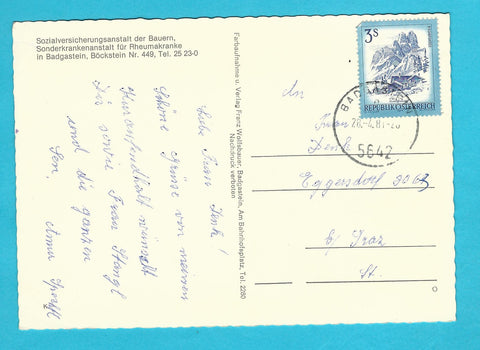 Sozialversicherungsanstalt der Bauern,
Sonderkrankenanstalt für Rheumakranke
in Badgastein, Böckstein Nr. 449, Tel. 25 23-0
Liebe Frau Denk!
Schöne Grüsse von meinem
Kuraufenthalt wünscht
Dir sowie Frau Stangl
und die ganzen
Anna
Farbaufnahme u. Verlag Franz Wolfsbauer, Badgastein, Am Bahnhofsplatz, Tel. 2260
Nachdruck verboten
3S
REPUBLIK ÖSTERREICH
5642
An
Frau
Denk
Eggersdorf 8063
b/ Graz
St.